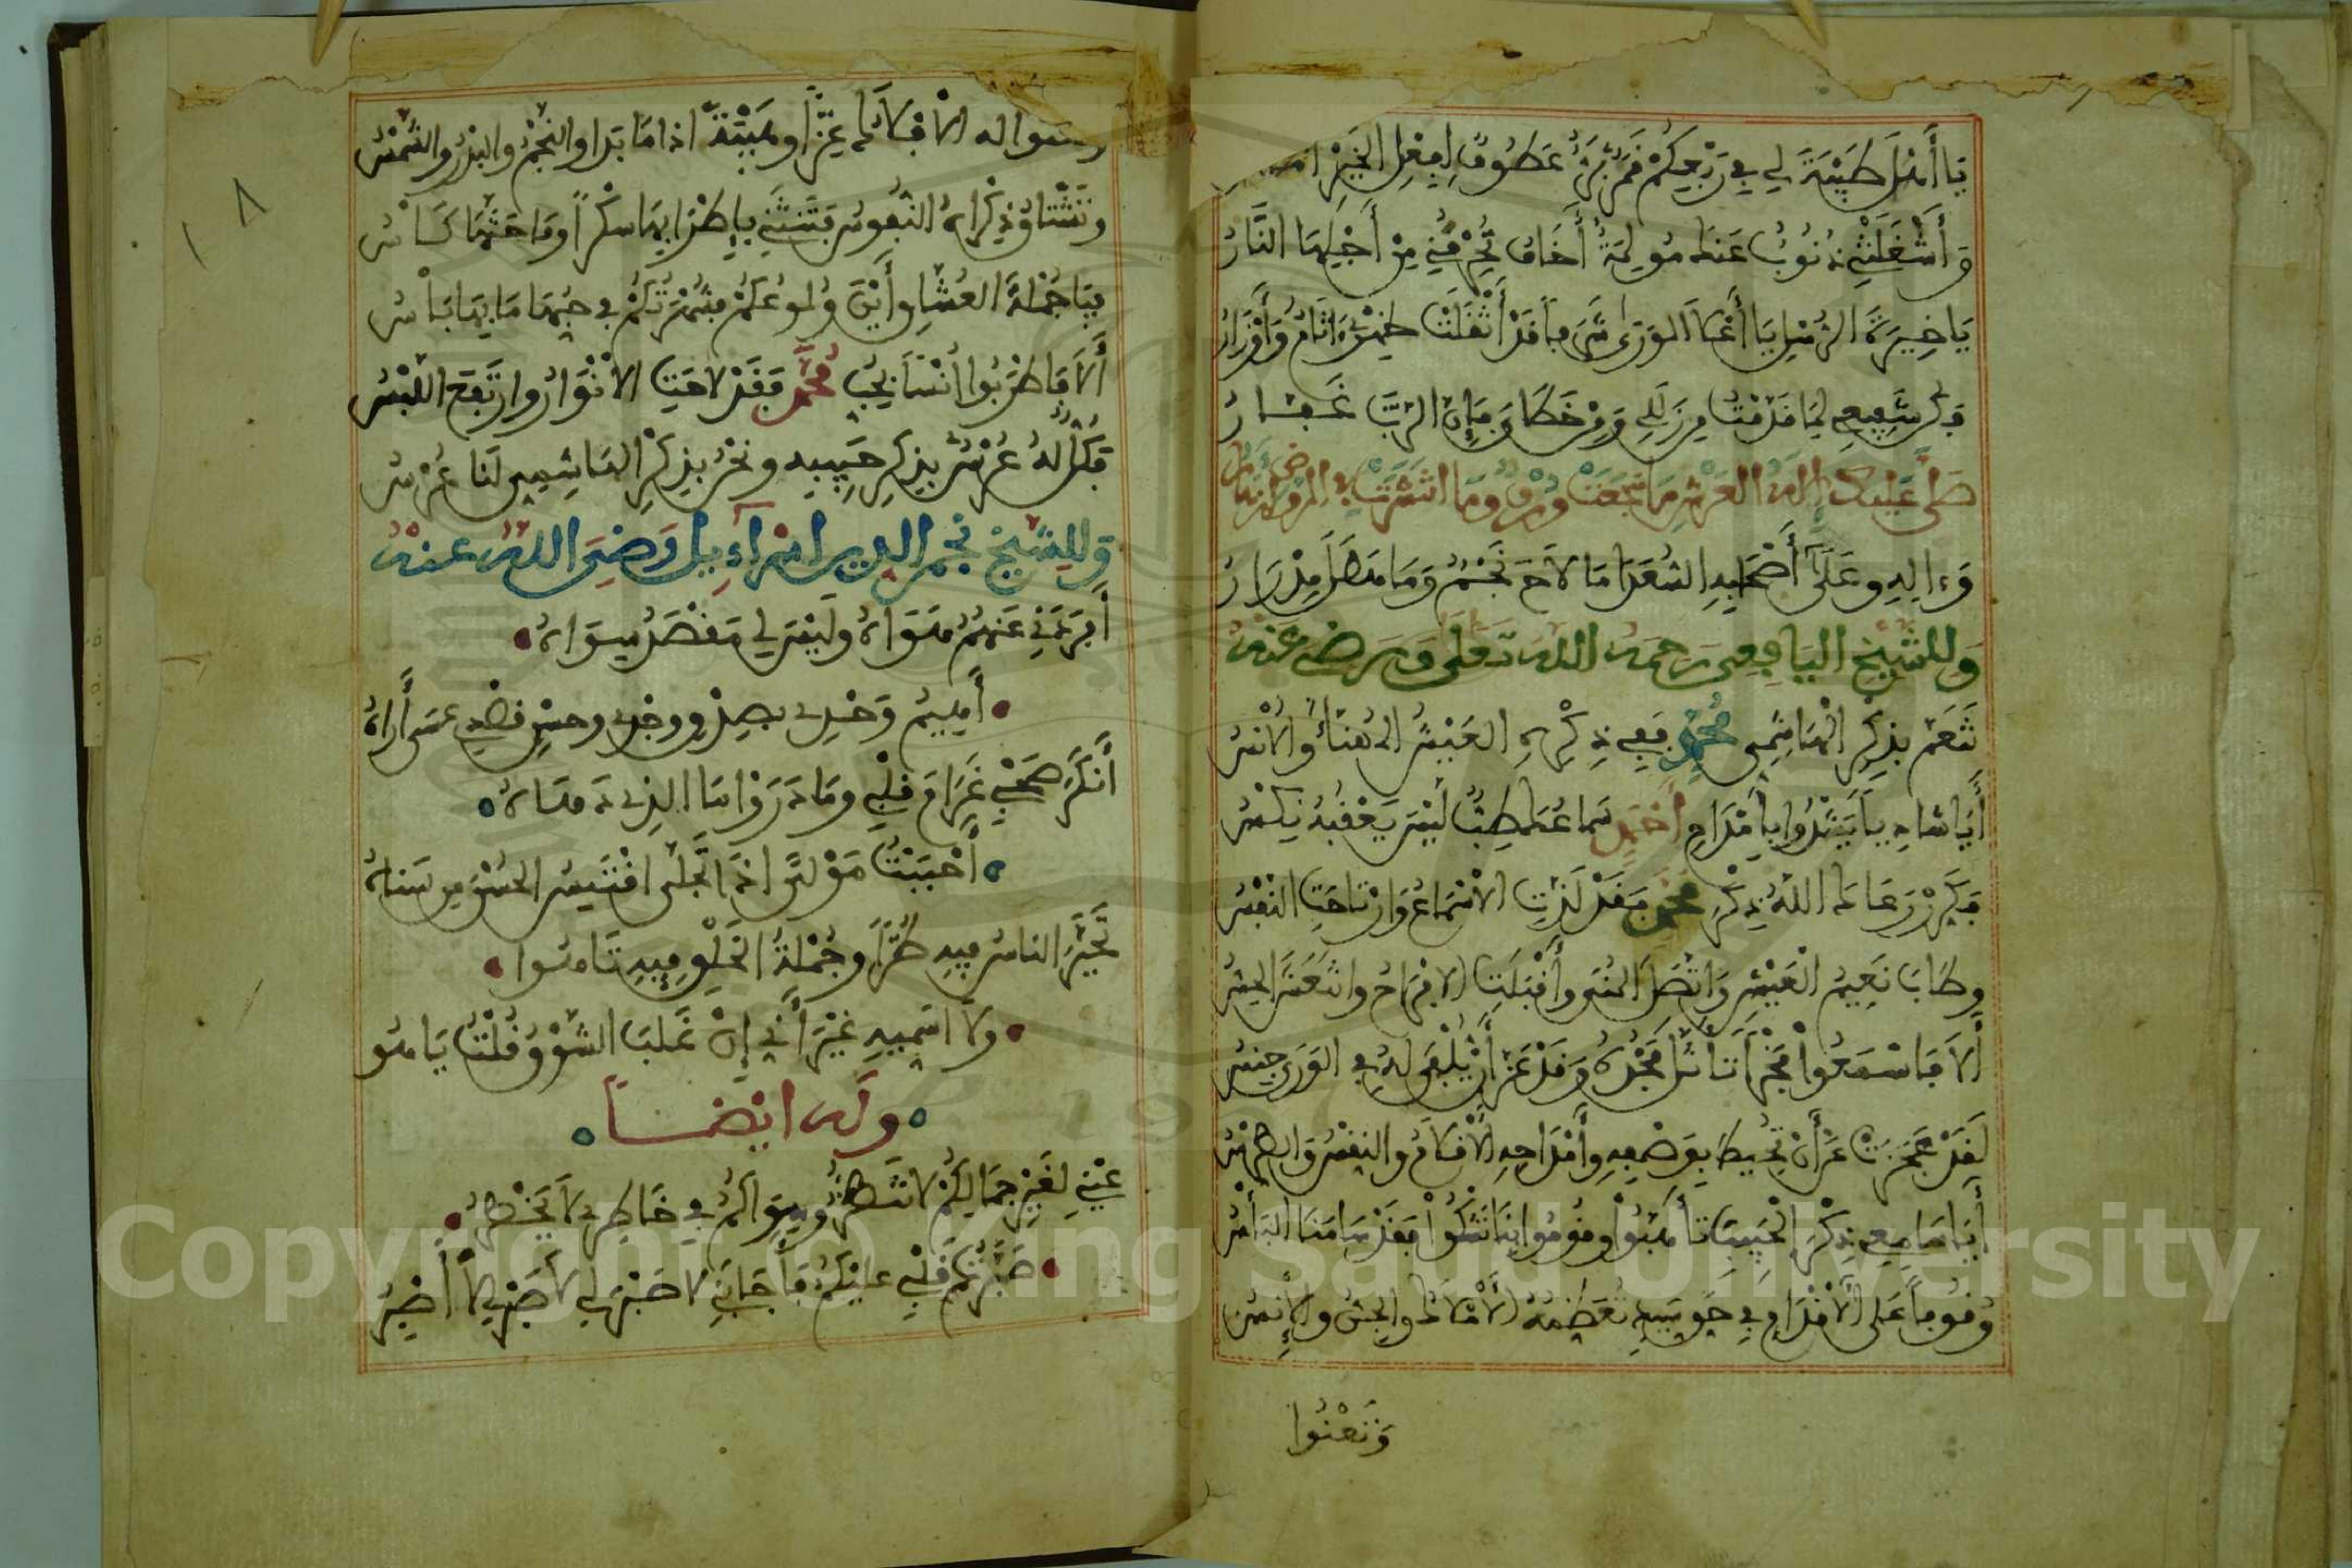 يَا أَهْلَ طَيْبَةَ لِي فِي رَبْعِكُمْ قَمَرٌ بَرٌّ عَطُوفٌ لِفِعْلِ الخَيْرِ
وَأَشْغَلَتْنِي ذُنُوبٌ عَنْهُ مُولِمَةٌ أَخَافُ تُحْرِقُنِي مِنْ أَجْلِهَا النَّارُ
يَا خِيرَةَ الرُّسْلِ يَا أَعْلَا الوَرَى شَرَفاً قَدْ أَثْقَلَتْ ظَهْرِيَ ءَاثَامٌ وَأَوْزَارُ
فَكُنْ شَفِيعِي لِمَا قَدَّمْتُ مِنْ زَلَلِي وَمِنْ خَطَايَ فَإِنَّ الرَّبَّ غَفَّارُ
صَلَّى عَلَيْكَ إِلَهُ العَرْشِ مَا سَجَعَتْ وُرْقٌ وَمَا انْتَشَرَتْ فِي الرَّوْضِ أَزْهَارُ
وَءَالِهِ وَعَلَى أَصْحَابِهِ السُّعَدَا مَا لَاحَ نَجْمٌ وَمَا هَطَلَ مِدْرَارُ
وَلِلشَّيْخِ اليَافِعِي رَحِمَهُ اللَّهُ تَعَلَى وَرَضِيَ عَنْهُ
تَنَعَّمْ بِذِكْرِ الهَاشِمِي مُحَمَّدٍ فَفِي ذِكْرِهِ العَيْشُ المُهَنَّأُ وَالأُنْسُ
أَيَا شَادِياً يَشْدُوا بِأَمْدَاحِ أَحْمَدٍ سَمَاعُكَ طِيبٌ لَيْسَ يَعْقُبُهُ نِكْسُ
فَكَرِّرْ رَعَاكَ اللَّهُ ذِكْرَ مُحَمَّدٍ فَقَدْ لَذَّتِ الأَسْمَاعُ وَارْتَاحَتِ النَّفْسُ
وَطَابَ نَعِيمُ العَيْشِ وَاتَّصَلَ المُنَى وَأَقْبَلَتِ الأَفْرَاحُ وَانْتَعَشَ الحِسُّ
أَلَا فَاسْمَعُوا مَجْداً تَأَثَّلَ مَجْدُهُ وَقَدْ عَزَّ أَنْ يُلْقَى لَهُ فِي الوَرَى جِنْسُ
لَقَدْ عَجَزَتْ عَنْ أَنْ تُحِيطَ بِوَصْفِهِ وَأَمْدَاحِهِ الأَقْلَامُ وَالنِّقْسُ وَالطِّرْسُ
أَيَا سَامِعِي ذِكْرِ الحَبِيبِ تَأَهَّبُوا وَقُومُوا بِنَا نَشْكُوا فَقَدْ سَامَنَا البَأْسُ
وُقُوفاً عَلَى الأَقْدَامِ فِي حَقِّ سَيِّدٍ تُعَظِّمُهُ الأَمْلَاكُ وَالجِنُّ وَالإِنْسُ
وَتَعْنُوا
لَهُ الأَفْلَاكُ عِزّاً وَهَيْبَةً اذَا مَا بَدَا وَالنَّجْمُ وَالبَدْرُ وَالشَّمْسُ
وَتَشْتَاقُ ذِكْرَاهُ النُّفُوسُ فَتَنْثَنِي بِإِطْرَابِهَا سُكْراً وَمَا حَثَّهَا كَأْسُ
فَيَا جُمْلَةَ العُشَّاقِ أَيْنَ وُلُوعُكُمْ فَشُهْرَتُكُمْ فِي حُبِّهَا مَا بِهَا بَأْسُ
أَلَا فَاطْرَبُوا أُنْساً بِحُبِّ مُحَمَّدٍ فَقَدْ لَاحَتِ الأَنْوَارُ وَارْتَفَعَ اللَّبْسُ
فَكُلٌّ لَهُ عُرْسٌ بِذِكْرِ حَبِيبِهِ وَنَحْنُ بِذِكْرِ الهَاشِمِي لَنَا عُرْسُ
وَلِلشَّيْخِ نَجْمِ الدِّينِ اسْرَآءِيلَ رَضِيَ اللَّهُ عَنْهُ
أَفْرَدَنِي عَنْهُمْ هَوَاهُ وَلَيْسَ لِي مَقْصَدٌ سِوَاهُ
أَهِيمُ وَحْدِي بِصِدْقِ وَجْدِي وَحُسْنِ قَصْدِي عَسَى أَرَاهُ
أَنْكَرَ صَحْبِي غَرَامَ قَلْبِي وَمَا دَرَوْا مَا الذِي دَهَاهُ
أَحْبَبْتُ مَوْلًى اذَا تَجَلَّى اقْتَبَسَ الحُسْنُ مِنْ سَنَاهُ
تَحَيَّرَ النَّاسُ فِيهِ طُرّاً وَجُمْلَةُ الخَلْقِ فِيهِ تَاهُوا
وَلَا اسَمِّيهِ غَيْرَ أَنِّي إِنْ غَلَبَ الشَّوْقُ قُلْتُ يَا هُو
وَلَهُ ايْضاً
عَيْنِي لِغَيْرِ جَمَالِكُمْ لَا تَنْظُرُ وَسِوَاكُمُ فِي خَاطِرِي لَا يَخْطُرُ
صَبَّرْتُ قَلْبِي عَلَيْكُمْ فَأَجَابَنِي لَا صَبْرَ لِي لَا صَبْرَ لِي لَا أَصْبِرُ
١٨
Copyright © King Saud University